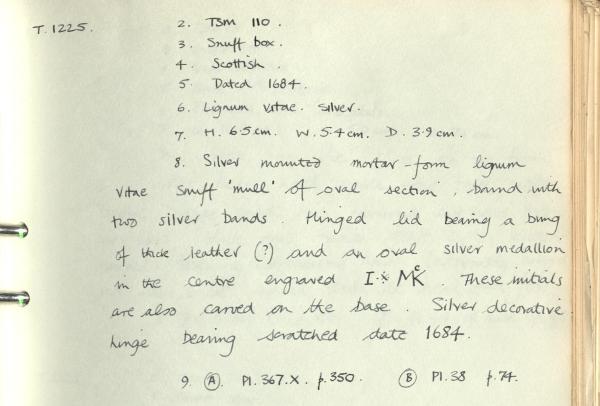 T.1225.
2. TSM 110.
3. Snuff box.
4. Scottish.
5. Dated 1684.
6. Lignum vitae. Silver.
7. H. 6.5cm. W. 5.4cm. D. 3.9cm.
8. Silver mounted mortar-form lignum
vitae snuff 'mull' of oval section, bound with
two silver bands. Hinged lid bearing a bung
of thick leather (?) and an oval silver medallion
in the centre engraved I⁘McK. These initials
are also carved on the base. Silver decorative
hinge bearing scratched date 1684.
9. (A). Pl. 367.X. p.350. (B) Pl.38 p.74.